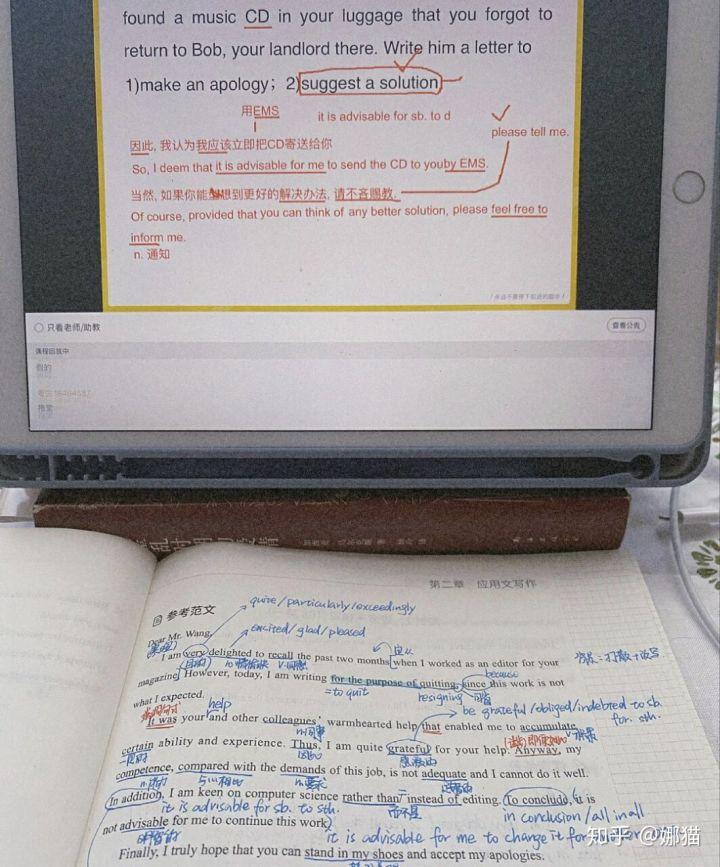 found a music CD in your luggage that you forgot to
return to Bob, your landlord there. Write him a letter to
1)make an apology; 2)suggest a solution
用EMS
it is advisable for sb. to d
please tell me.
因此, 我认为我应该立即把CD寄送给你
So, I deem that it is advisable for me to send the CD to youby EMS.
当然, 如果你能想到更好的解决办法, 请不吝赐教.
Of course, provided that you can think of any better solution, please feel free to
inform me.
n. 通知
只看老师/助教
查看公告
课程回放中
第二章 应用文写作
参考范文
quite/particularly/exceedingly
Dear Mr. Wang,
excited/glad/pleased
I am very delighted to recall the past two months when I worked as an editor for your
because
magazine. However, today, I am writing for the purpose of quitting, since this work is not
=to quit
resigning
what I expected.
help
be grateful/obliged/indebted to sb.
for. sth.
It was your and other colleagues' warmhearted help that enabled me to accumulate
certain ability and experience. Thus, I am quite grateful for your help. Anyway, my
competence, compared with the demands of this job, is not adequate and I cannot do it well.
In addition, I am keen on computer science rather than instead of editing. To conclude, it is
it is advisable for sb. to sth.
in conclusion/all in all
not advisable for me to continue this work.
it is advisable for me to change it for
Finally, I truly hope that you can stand in my shoes and accept my apologies.
知乎 @娜猫